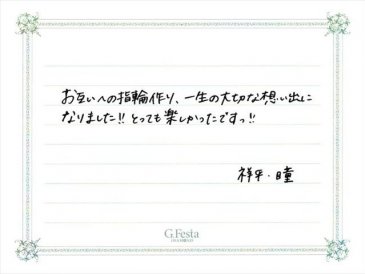 お互いへの指輪作り、一生の大切な想い出に
なりました!! とっても楽しかったですっ!!
祥平・瞳
G.Festa